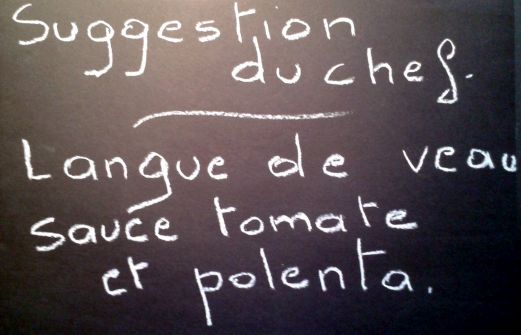 Suggestion
du chef.
Langue de veau
sauce tomate
et polenta.